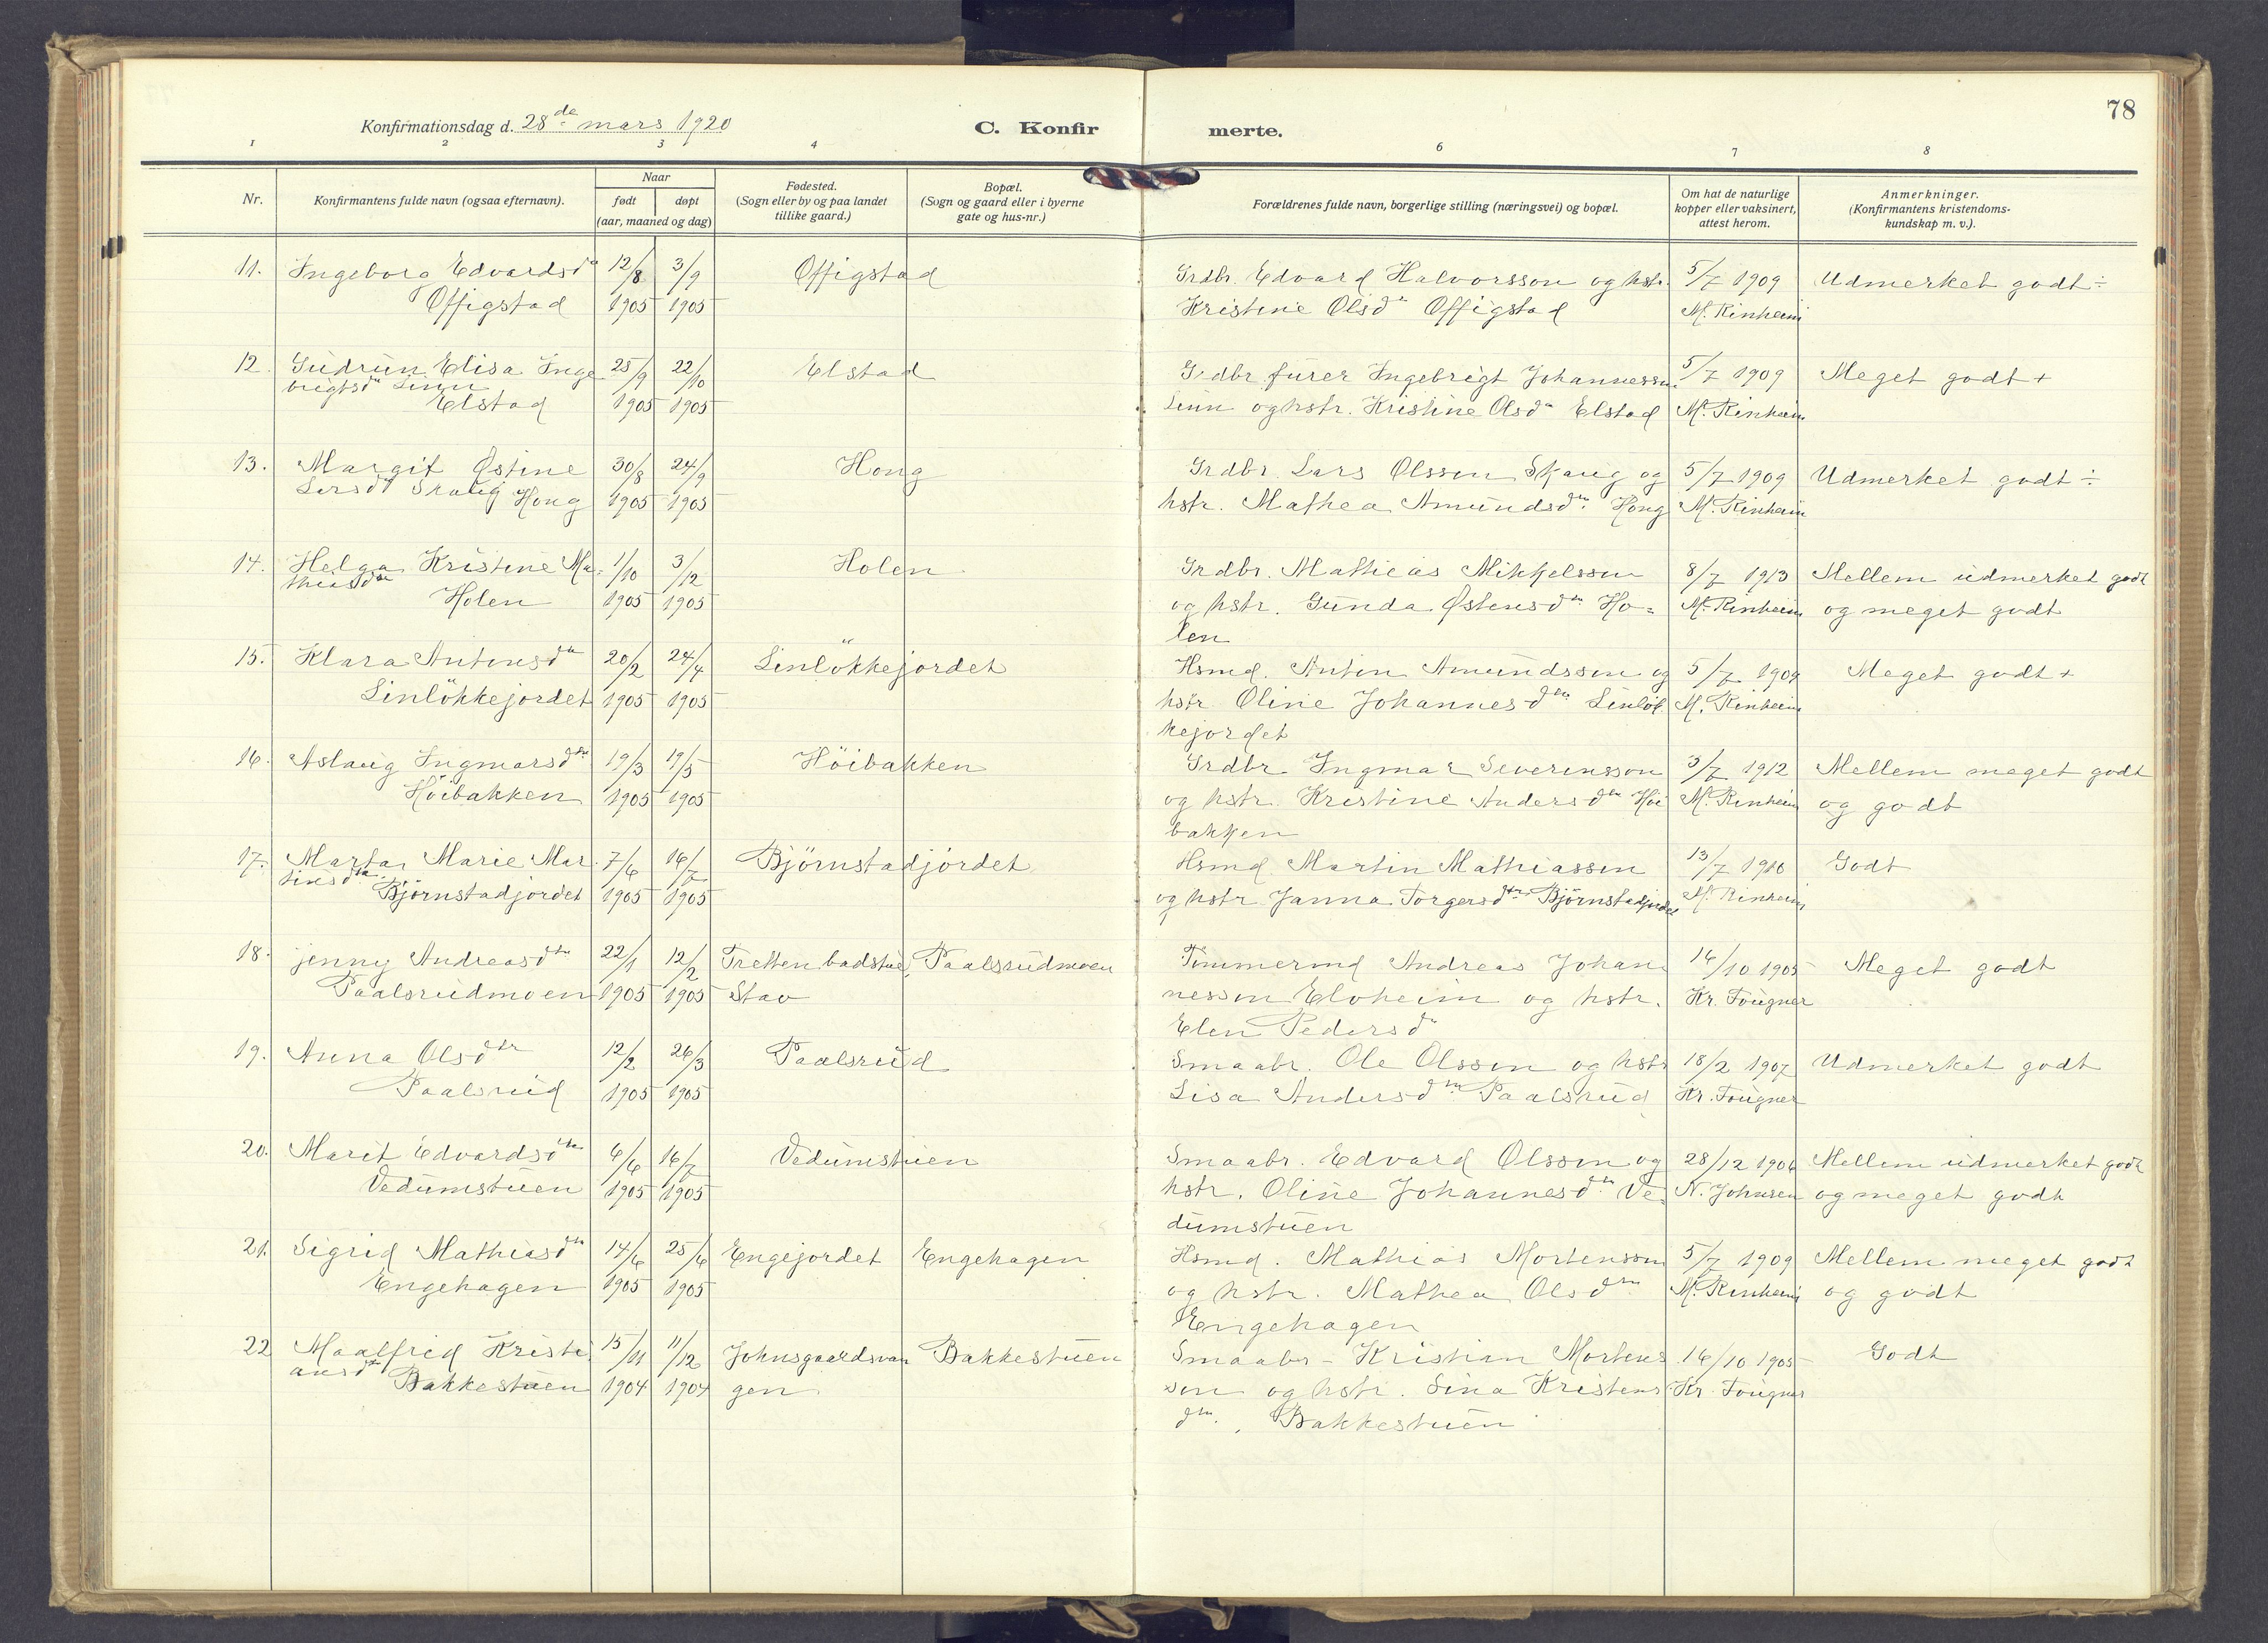 78
Konfirmationsdag d. 28de mars 1920
C. Konfirmerte.
1 2 3 4 6 7 8
Nr.
Konfirmantens fulde navn (ogsaa efternavn).
Naar
født døpt
(aar, maaned og dag)
Fødested.
(Sogn eller by og paa landet
tillike gaard.)
Bopæl.
(Sogn og gaard eller i byerne
gate og hus-nr.)
Forældrenes fulde navn, borgerlige stilling (næringsvei) og bopæl.
Om hat de naturlige
kopper eller vaksinert,
attest herom.
Anmerkninger.
(Konfirmantens kristendoms-
kundskap m. v.).
11. Ingeborg Edvardsdtr 12/8 3/9 Offigstad Grdbr. Edvard Halvorsson og hstr. 5/7 1909 Udmerket godt ÷
Offigstad 1905 1905 Kristine Olsdtr Offigstad M. Rinheim
12. Gudrun Elisa Inge 25/9 22/10 Elstad Grdbr. furer Ingebrigt Johannessen 5/7 1909 Meget godt +
brigtsdtr Linn
Elstad 1905 1905 Linn og hstr. Kristine Olsdtr Elstad M. Rinheim
13. Margit Østine 30/8 24/9 Hong Grdbr. Lars Olssen Skaug og 5/7 1909 Udmerket godt ÷
Larsdtr Skaug Hong 1905 1905 hstr. Mathea Amundsdtr. Hong M. Rinheim
14. Helga Kristine Ma- 1/10 3/12 Holen Grdbr. Mathias Mikkelssen 8/7 1913 Mellem udmerket godt
thiasdtr
Holen 1905 1905 og hstr. Gunda Østensdtr Ho= M. Rinheim og meget godt
len
15. Klara Antonsdtr 20/2 24/4 Linløkkejordet Hsmd. Anton Amundssen og 5/7 1909 Meget godt +
Linløkkejordet 1905 1905 hstr Oline Johannesdtr Linløk M. Rinheim
kejordet
16. Aslaug Ingmarsdtr 19/3 19/5 Höibakken Grdbr. Ingmar Severinsson 3/7 1912 Mellem meget godt
Höibakken 1905 1905 og hstr. Kristine Andersdtr Höi M. Rinheim og godt
bakken
17. Marta Marie Mar 7/6 16/7 Björnstadjordet Hsmd Martin Mathiassen 13/7 1910 Godt
tinsdtr
Björnstadjordet 1905 1905 og hstr Janna Torgersdtr Björnstadjordet M. Rinheim
18. Jenny Andreasdtr 22/1 12/2 Tretten badstue, Paalsrudmoen Tømmermd Andreas Johan 16/10 1905 Meget godt
Paalsrudmoen 1905 1905 Stav nessen Eloheim og hstr. Kr. Fougner
Elen Pedersdtr
19. Anna Olsdtr 12/2 26/3 Paalsrud Smaabr. Ole Olssen og hstr 18/2 1907 Udmerket godt
Paalsrud 1905 1905 Lisa Andersdtr Paalsrud Kr. Fougner
20. Marit Edvardsdtr 6/6 16/7 Vedumstuen Smaabr. Edvard Olssen og 28/12 1906 Mellem udmerket godt
Vedumstuen 1905 1905 hstr. Oline Johannesdtr Ve- N. Johnsen og meget godt
dumstuen
21. Sigrid Mathiasdtr 14/6 25/6 Engejordet Engehagen Hsmd. Mathias Mortenson 5/7 1909 Mellem meget godt
Engehagen 1905 1905 og hstr. Mathea Olsdtr M. Rinheim og godt
Engehagen
22 Maalfrid Kristi 15/11 11/12 Johnsgaardsvan Bakkestuen Smaabr - Kristian Mortens 16/10 1905 Godt
ansdtr
Bakkestuen 1904 1904 gen son og hstr. Sina Kristens Kr. Fougner
dtr. Bakkestuen